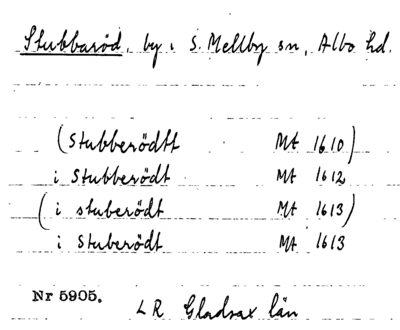 Stubbaröd, by i S. Mellby sn, Albo hd.
(Stubberödtt Mt 1610)
i Stubberödt Mt 1612
(i stuberödt Mt 1613)
i Stuberödt Mt 1613
Nr 5905.
LR Gladsax län